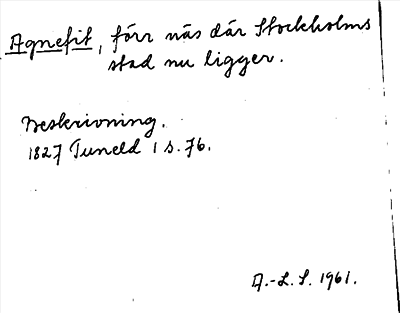 Agnefit, förr näs där Stockholms
stad nu ligger.
Beskrivning.
1827 Tuneld I s. 76.
A.-L. S. 1961.